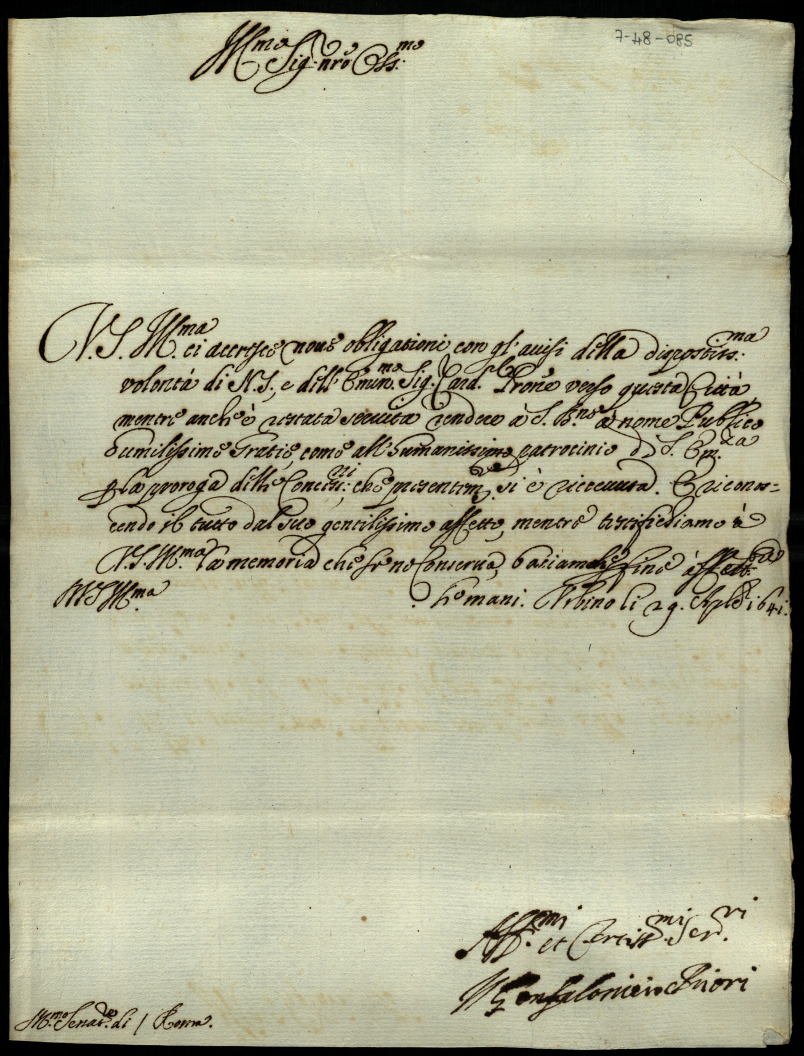 7-48-085
Ill.mo Sig. nro Oss.mo
V. S. Ill.ma ci accresce nove obligationi con gl'avisi della dispostiss.ma
volontà di N. S., e dell' Emin.mo Sig. Card.l Prone verso questa Città
mentre anche è restata servita rendere à S. B.ne à nome Publico
humilissime gratie, come all' humanissimo patrocinio di S. Em.za
p la proroga delle che presentem.te si è ricevuta. E ricono=
cendo il tutto dal suo gentilissimo affetto, mentre testifichiamo à
V. S. Ill.ma la memoria che se ne conserva, batiamole fine
V S Ill.ma le mani. Urbino li 29. Aple 1641.
Aff.mi et Ser.ri
Il Gonfaloniero e Priori
Ill.mo Senat.re di / Roma.